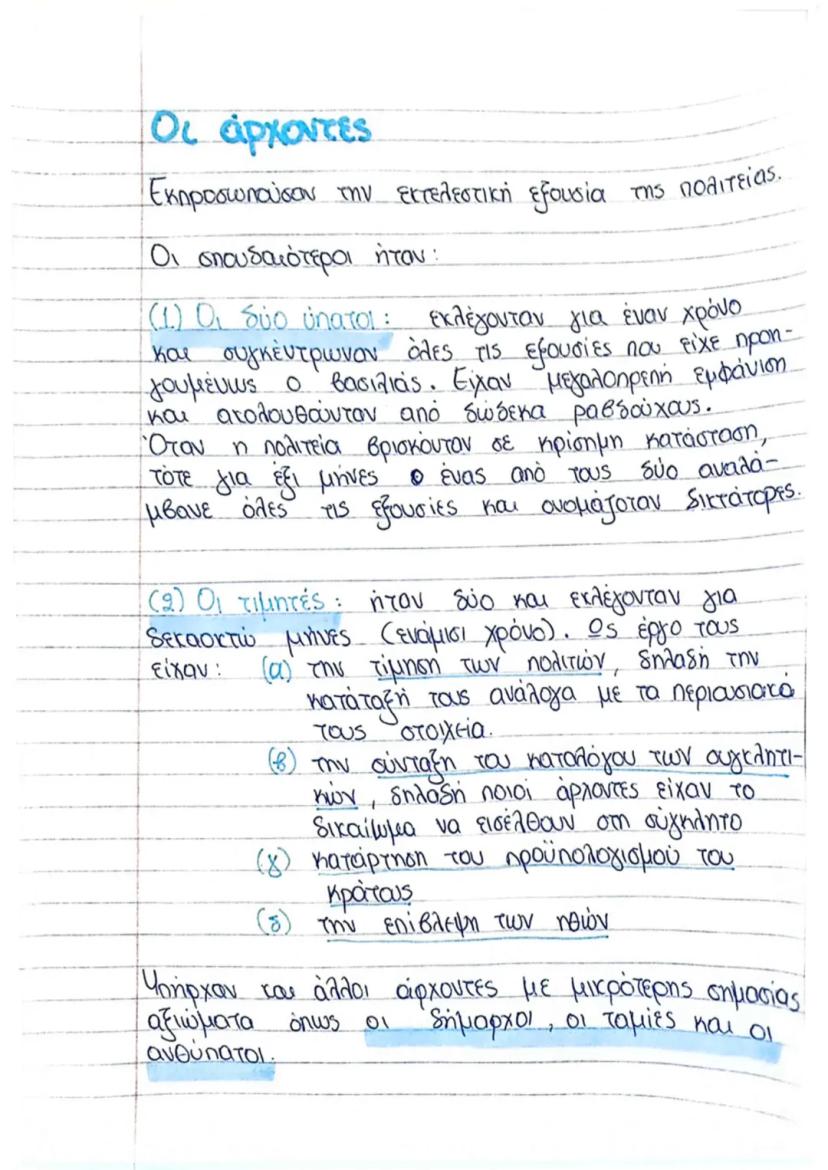 Οι άρχοντες
Εκπροσωπούσαν την εκτελεστική εξουσία της πολιτείας.
Οι σπουδαιότεροι ήταν:
(1) Οι δύο ύπατοι: εκλέγονταν για έναν χρόνο
και συγκέντρωναν όλες τις εξουσίες που είχε προη-
γουμένως ο βασιλιάς. Είχαν μεγαλοπρεπή εμφάνιση
και ακολουθούνταν από δώδεκα ραβδούχους.
Όταν η πολιτεία βρισκόνταν σε κρίσημη κατάσταση,
τότε για έξι μήνες ο ένας από τους δύο αναλά-
μβανε όλες τις εξουσίες και ονομάζοταν δικτάτορες.
(2) Οι τιμητές: ήταν δύο και εκλέγονταν για
δεκαοκτώ μήνες (ενάμισι χρόνο). Ως έργο τους
είχαν: (α) την τίμηση των πολιτών, δηλαδή την
κατάταξή τους ανάλογα με τα περιουσιακά
τους στοιχεία.
(β) την σύνταξη του καταλόγου των συγκλητι-
κών, δηλαδή ποιοί άρχοντες είχαν το
δικαίωμα να εισέλθουν στη σύγκλητο
(γ) κατάρτηση του προϋπολογισμού του
κράτους
(δ) την επίβλεψη των ηθών
Υπήρχαν και άλλοι άρχοντες με μικρότερης σημασίας
αξιώματα όπως οι δήμαρχοι, οι ταμίες και οι
ανθύπατοι.